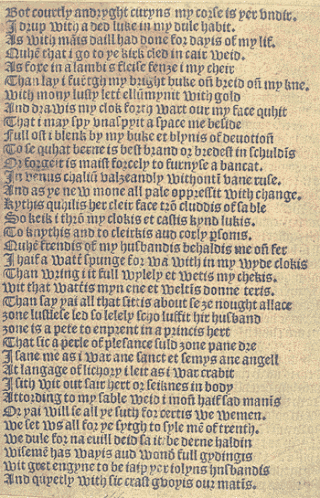 Bot courtly and ryght curyus my corse is yer vndir.
I drup with a ded luke in my dule habit.
As with māis daill had done for dayis of my lif.
Quhē that i go to ye kirk cled in cair weid.
As foxe in a lambis fleise fenze i my cheir
Than lay i furgh my bright buke on breid on my kne.
with mony lusty letter ellummynit with gold
And drawis my clok forthwart our my face quhit
That i may spy vnaspyit a space me beside
Full oft i blenk by my buke et blynis of deuotion
To se quhat berne is best brand or bredest in schuldis
Or forgeit is maist forcely to furnyse a bancat.
In venus chalmer valzeandly withoutī vane ruse.
And as ye new mone all pale oppressit with change.
kythis quhilis her cleir face trō cluddis of sable
So keik i thrō my clokis et castis kynd lukis.
To knythis and to cleirkis and cortly psonis.
Quhē frendis of my husbandis behaldis me on fer
I haif a watt spunge for wa with in my wyde clokis
Than wring i it full wylely et wetis my chekis.
wit that wattis myn ene et weltis donne teris.
Than say yai all that sittis about se ze nought allace
zone lustlese led so lelely scho luffit hir husband
zone is a pete to enprent in a princis hert
That sic a perle of plesance suld zone pane dre
I sane me as i war ane sanct et semys ane angell
At langage of lichory i leit as i war crabit
I sith wit out sair hert or seiknes in body
According to my sable weid i mon haif sad manis
Or yai will se all ye suth for certis we wemen.
we set ws all for ye syght to syle mē of trenth.
we dule for na euill deid sa it be derne haldin
wisemē has wayis and wondfull gydingis
wit gret engyne to be iaip yer iolyus husbandis
And quyetly with sic craft gwoyis our matis.